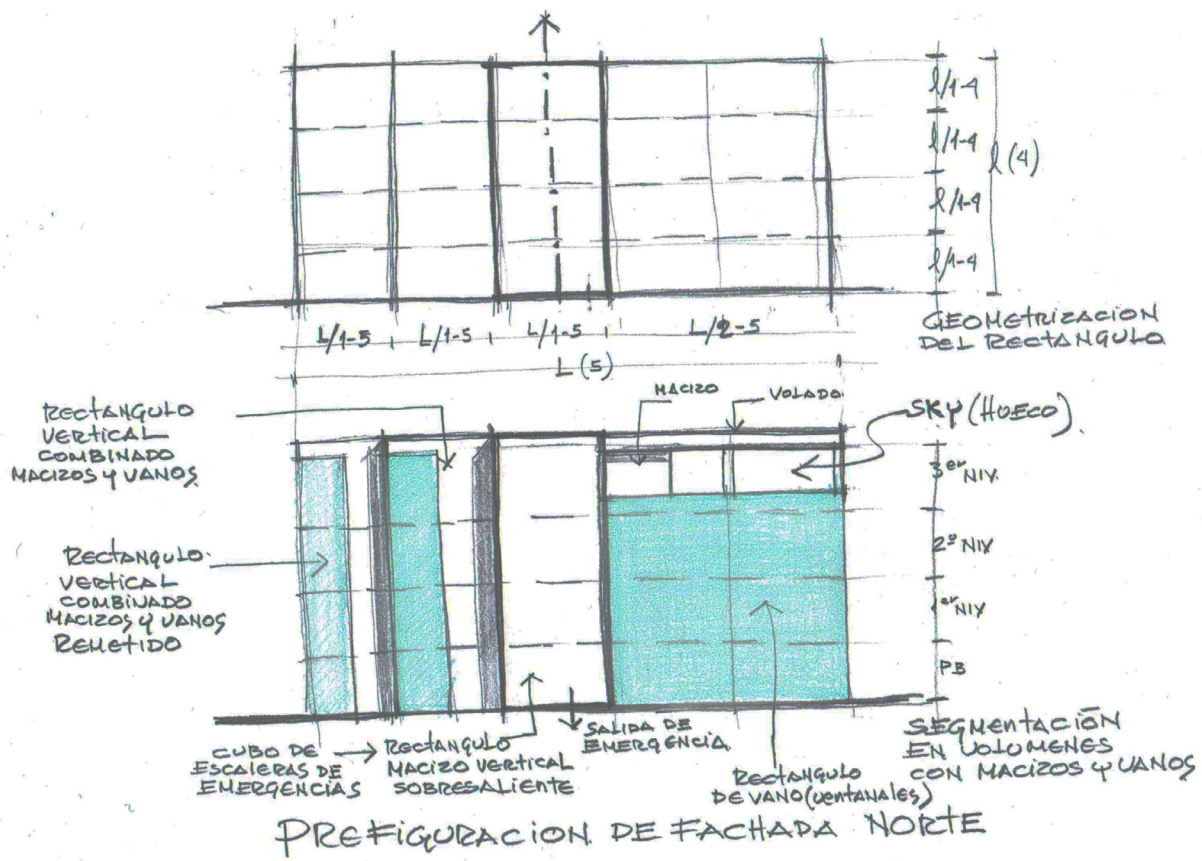 l/1-4
l/1-4
l/1-4
l/1-4
l(4)
GEOMETRIZACION
DEL RECTANGULO
L/1-5
L/1-5
L/1-5
L/2-5
L(5)
RECTANGULO
VERTICAL
COMBINADO
MACIZOS y VANOS
MACIZO
VOLADO
SKY (HUECO).
3er NIV.
2º NIV
1er NIV
PB
RECTANGULO
VERTICAL
COMBINADO
MACIZOS y VANOS
REMETIDO
CUBO DE
ESCALERAS DE
EMERGENCIAS
RECTANGULO
MACIZO VERTICAL
SOBRESALIENTE
SALIDA DE
EMERGENCIA
RECTANGULO
DE VANO (ventanales)
SEGMENTACIÓN
EN VOLUMENES
CON MACIZOS y VANOS
PREFIGURACION DE FACHADA NORTE